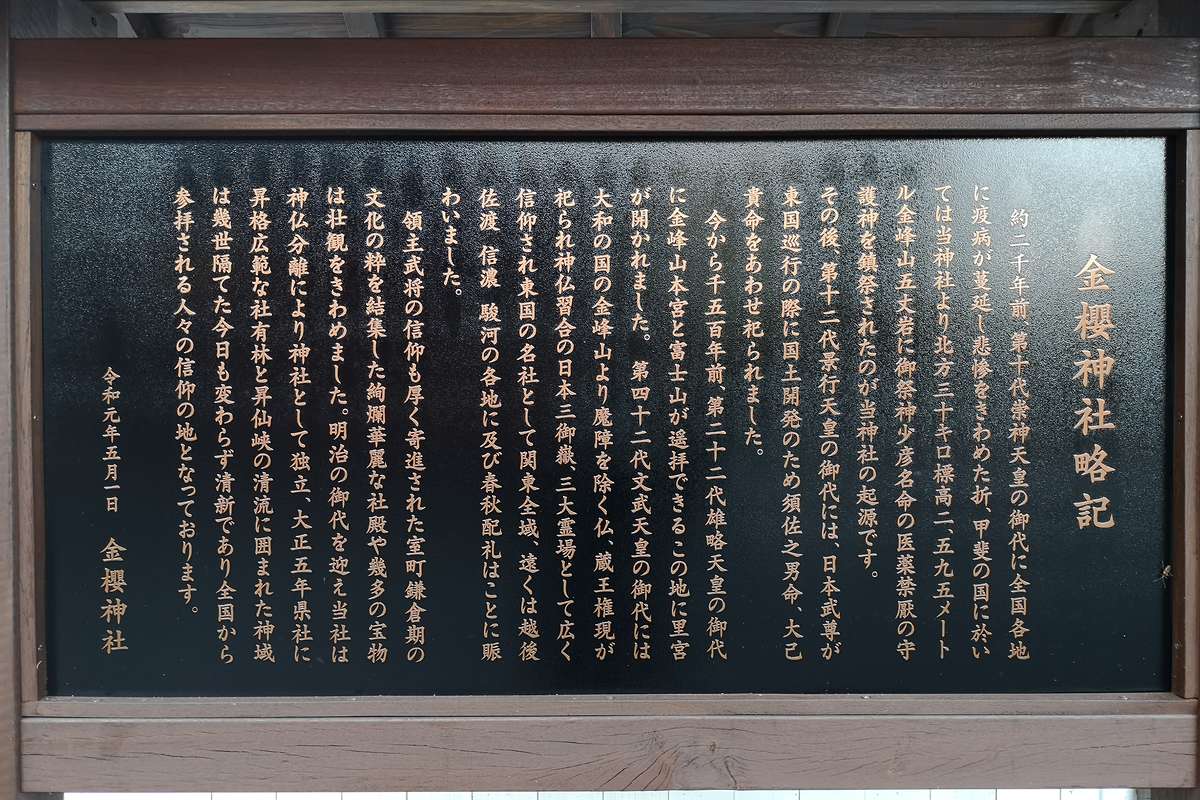 金櫻神社略記
約二千年前、第十代崇神天皇の御代に全国各地
に疫病が蔓延し悲惨をきわめた折、甲斐の国に於い
ては当神社より北方三十キロ標高二、五九五メート
ル金峰山五丈岩に御祭神少彦名命の医薬禁厭の守
護神を鎮祭されたのが当神社の起源です。
その後、第十二代景行天皇の御代には、日本武尊が
東国巡行の際に国土開発のため須佐之男命、大己
貴命をあわせ祀られました。
今から千五百年前、第二十二代雄略天皇の御代
に金峰山本宮と富士山が遥拝できるこの地に里宮
が開かれました。第四十二代文武天皇の御代には
大和の国の金峰山より魔障を除く仏、蔵王権現が
祀られ神仏習合の日本三御嶽、三大霊場として広く
信仰され東国の名社として関東全域、遠くは越後
佐渡 信濃 駿河の各地に及び春秋配札はことに賑
わいました。
領主武将の信仰も厚く寄進された室町鎌倉期の
文化の粋を結集した絢爛華麗な社殿や幾多の宝物
は壮観をきわめました。明治の御代を迎え当社は
神仏分離により神社として独立、大正五年県社に
昇格広範な社有林と昇仙峡の清流に囲まれた神域
は幾世隔てた今日も変わらず清新であり全国から
参拝される人々の信仰の地となっております。
令和元年五月一日 金櫻神社